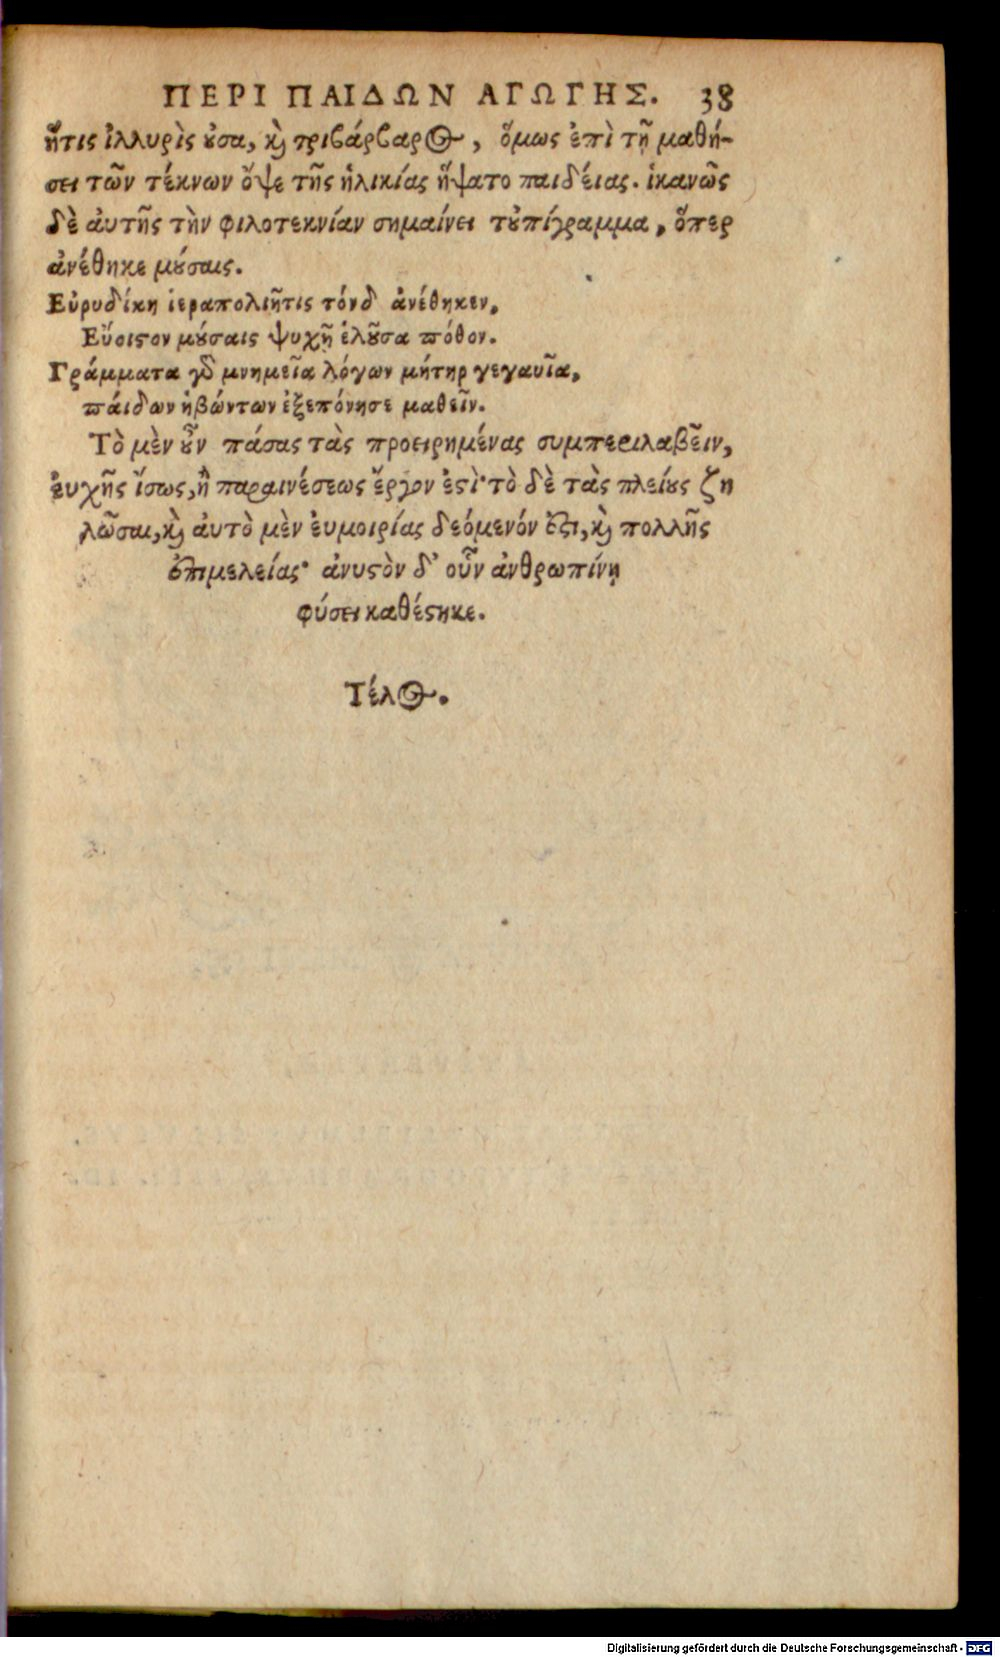 ΠΕΡΙ ΠΑΙΔΩΝ ΑΓΩΓΗΣ. 38
ἥτις ἰλλυρὶς ȣ̓σα, ϗ τριβάρβαρος, ὅμως ἐπὶ τῇ μαθή-
σει τῶν τέκνων ὄψε τῆς ἡλικίας ἥψατο παιδείας. ἱκανῶς
δὲ ἀυτῆς τὴν φιλοτεκνίαν σημαίνει τȣ̓πίγραμμα, ὅπερ
ἀνέθηκε μȣ́σαις.
Εὐρυδίκη ἱεραπολιῆτις τόνδ ἀνέθηκεν,
Εὔοιϛον μȣ́σαις ψυχῇ ἑλȣ͂σα πόθον.
Γράμματα γὰρ μνημεῖα λόγων μήτηρ γεγαυῖα,
πάιδων ἡβώντων ἐξεπόνησε μαθεῖν.
Τὸ μὲν ȣ͂ν πάσας τὰς προειρημένας συμπεριλαβεῖν,
ἐυχῆς ἴσως, ἢ παραινέσεως ἔργον ἐϛὶ· τὸ δὲ τὰς πλείȣς ζη
λῶσαι, ϗ ἀυτὸ μὲν ἐυμοιρίας δεόμενόν ἐϛι, ϗ πολλῆς
ἐπιμελείας· ἀνυϛὸν δ᾽ οὖν ἀνθρωπίνῃ
φύσει καθέϛηκε.
Τέλος.
Digitalisierung gefördert durch die Deutsche Forschungsgemeinschaft - DFG